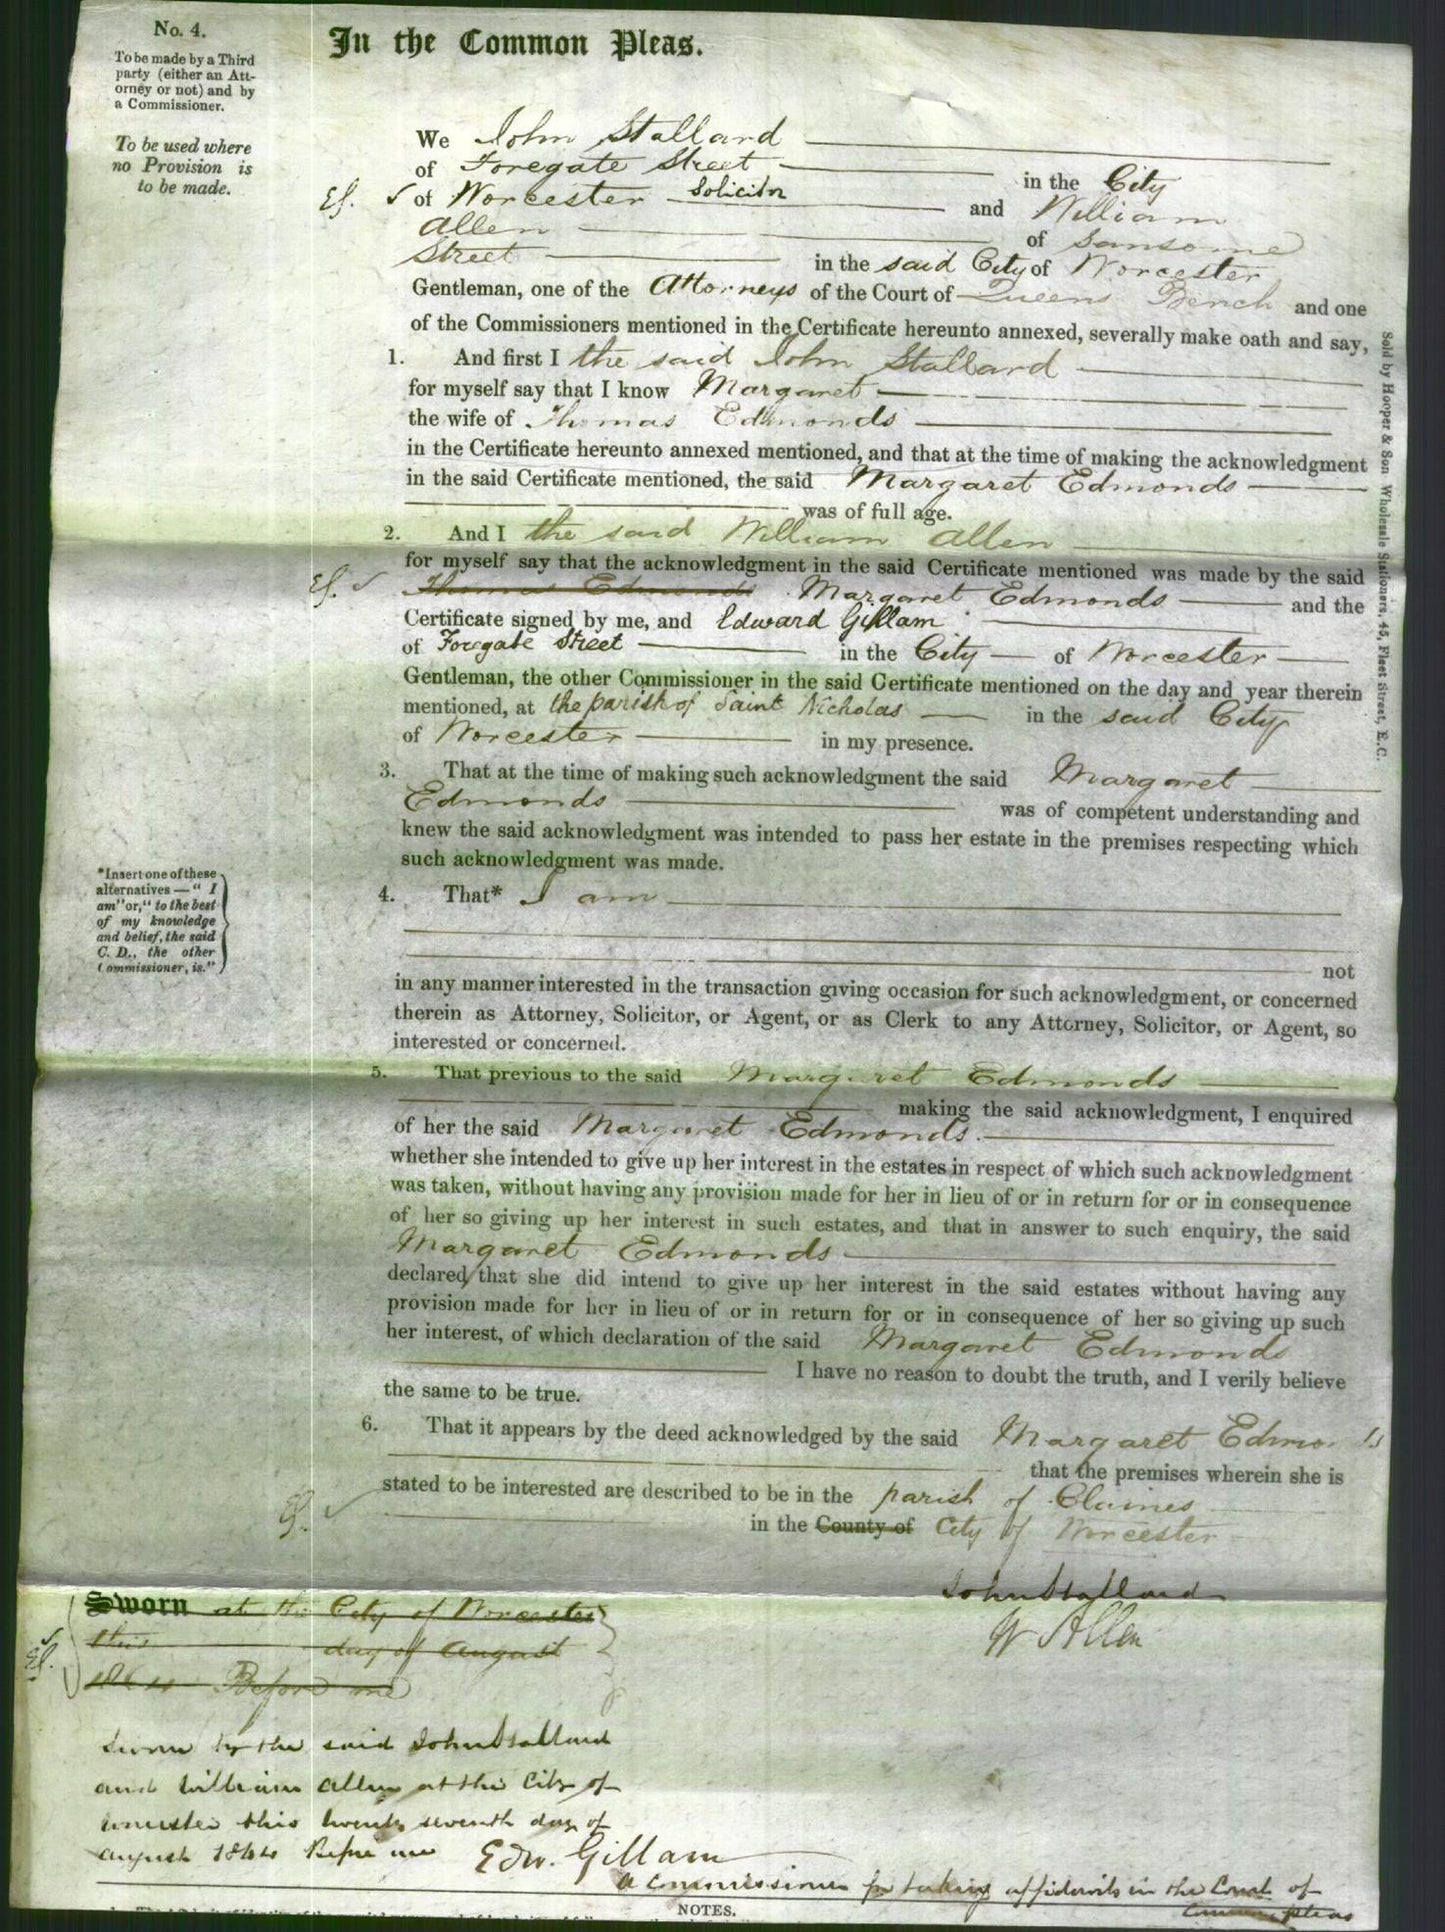 No. 4.
To be made by a Third
party (either an Att-
orney or not) and by
a Commissioner.
To be used where
no Provision is
to be made.
In the Common Pleas.
We John Stallard
of Foregate Street in the City
of Worcester Solicitor and William
Allen of Sansome
Street in the said City of Worcester
Gentleman, one of the Attorneys of the Court of Queens Bench and one
of the Commissioners mentioned in the Certificate hereunto annexed, severally make oath and say,
1. And first I the said John Stallard
for myself say that I know Margaret
the wife of Thomas Edmonds
in the Certificate hereunto annexed mentioned, and that at the time of making the acknowledgment
in the said Certificate mentioned, the said Margaret Edmonds
was of full age.
2. And I the said William Allen
for myself say that the acknowledgment in the said Certificate mentioned was made by the said
Thomas Edmonds Margaret Edmonds and the
Certificate signed by me, and Edward Gillam
of Foregate Street in the City of Worcester
Gentleman, the other Commissioner in the said Certificate mentioned on the day and year therein
mentioned, at the parish of Saint Nicholas in the said City
of Worcester in my presence.
3. That at the time of making such acknowledgment the said Margaret
Edmonds was of competent understanding and
knew the said acknowledgment was intended to pass her estate in the premises respecting which
such acknowledgment was made.
*Insert one of these
alternatives — "I
am" or, "to the best
of my knowledge
and belief, the said
C. D., the other
Commissioner, is."
4. That* I am
not
in any manner interested in the transaction giving occasion for such acknowledgment, or concerned
therein as Attorney, Solicitor, or Agent, or as Clerk to any Attorney, Solicitor, or Agent, so
interested or concerned.
5. That previous to the said Margaret Edmonds
making the said acknowledgment, I enquired
of her the said Margaret Edmonds.
whether she intended to give up her interest in the estates in respect of which such acknowledgment
was taken, without having any provision made for her in lieu of or in return for or in consequence
of her so giving up her interest in such estates, and that in answer to such enquiry, the said
Margaret Edmonds
declared that she did intend to give up her interest in the said estates without having any
provision made for her in lieu of or in return for or in consequence of her so giving up such
her interest, of which declaration of the said Margaret Edmonds
I have no reason to doubt the truth, and I verily believe
the same to be true.
6. That it appears by the deed acknowledged by the said Margaret Edmonds
that the premises wherein she is
stated to be interested are described to be in the parish of Claines
in the County of City of Worcester
John Stallard
W Allen
Sworn at the City of Worcester
this day of August
Before me
Sworn by the said John Stallard
and William Allen at the City of
Worcester this twenty seventh day of
August 1864 Before me Edw. Gillam
A Commissioner for taking affidavits in the Court of
Common pleas
NOTES.
Sold by Hooper & Son Wholesale Stationers, 45, Fleet Street, E.C.